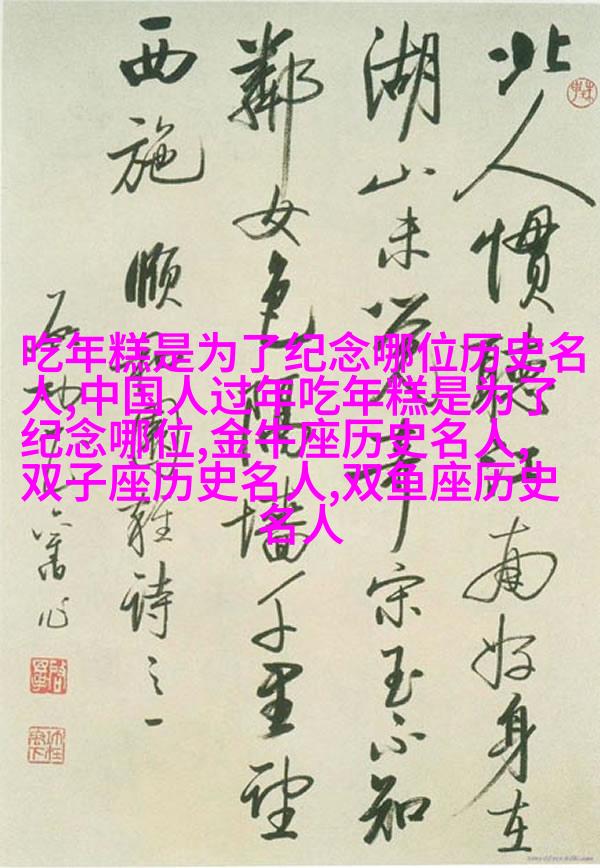 吃年糕是为了纪念哪位历史名
人,中国人过年吃年糕是为了
纪念哪位,金牛座历史名人,
双子座历史名人,双鱼座历史
名人
北人慣聽江南好身在
湖山未覺奇宋玉不知
鄰女色隔墻千里望
西施 順雜詩之一
舊作